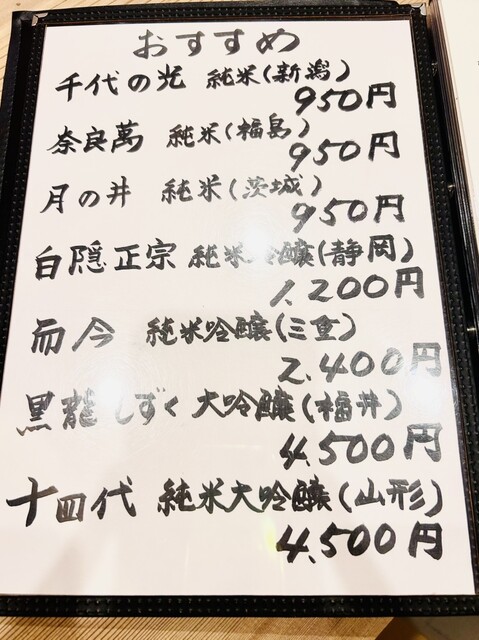 おすすめ
千代の光 純米(新潟)
950円
奈良萬 純米(福島)
950円
月の井 純米(茨城)
950円
白隠正宗 純米吟醸(静岡)
1.200円
而今 純米吟醸(三重)
2.400円
黒龍しずく 大吟醸(福井)
4.500円
十四代 純米大吟醸(山形)
4.500円